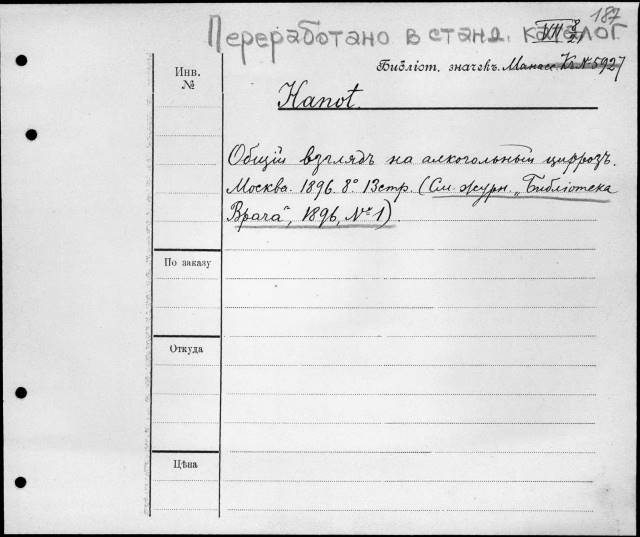 187
Переработано в станд. каталог
VII 8/21
Библіот. значекъ. Манас. Кг. № 5927
Инв.
№
Hanot.
Общій взглядъ на алкогольный циррозъ.
Москва. 1896. 8°. 13 стр. (См. журн. „Библіотека
Врача", 1896, № 1).
По заказу
Откуда
Цѣна